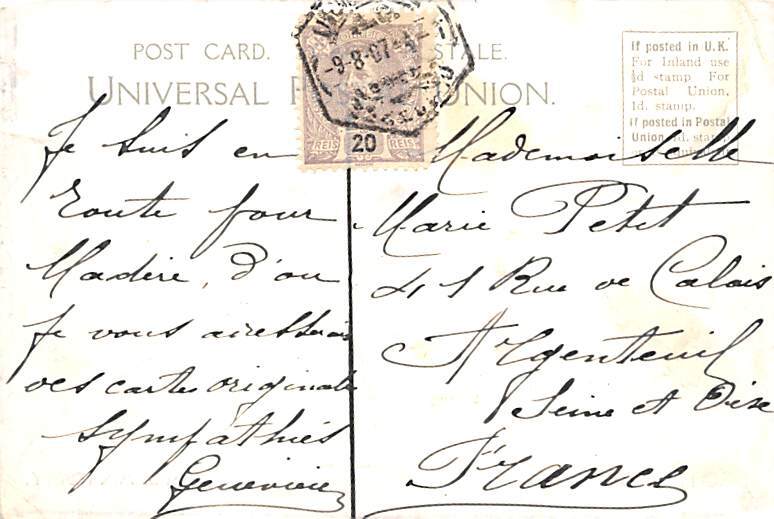 POST CARD.
UNIVERSAL UNION.
9-8-07
REIS 20 REIS
If posted in U.K.
For Inland use
½d stamp. For
Postal Union,
1d. stamp.
If posted in Postal
Union, 1d. stamp
Je suis en
route pour
Madère, d'ou
je vous adresserai
des cartes originales
Sympathies
Genevieve
Mademoiselle
Marie Petit
41 Rue de Calais
Argenteuil
Seine et Oise
France